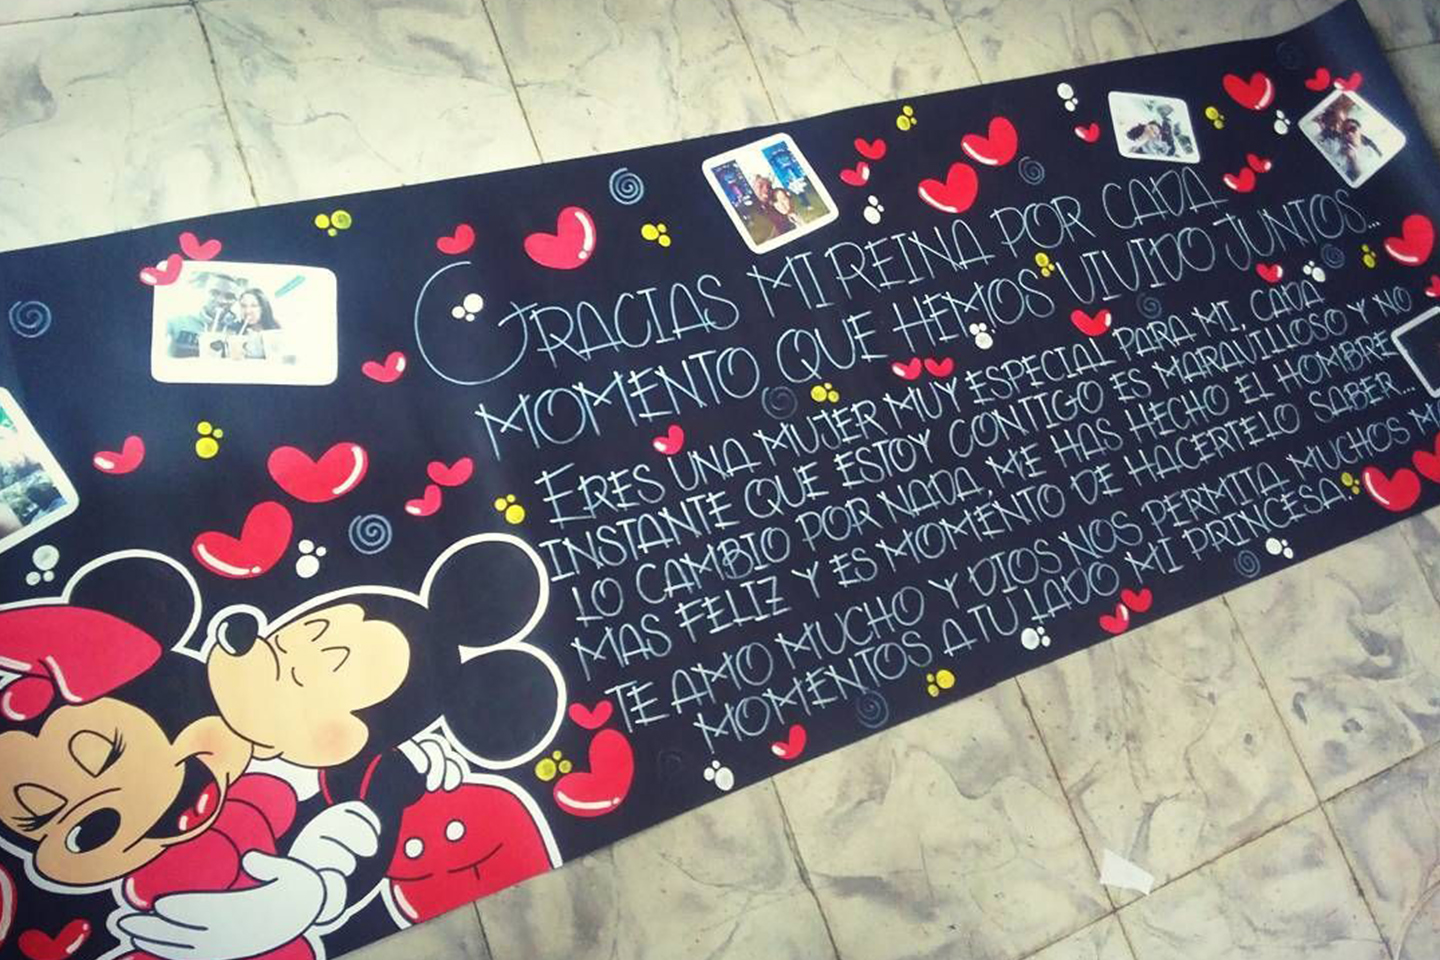 GRACIAS MI REINA POR CADA
MOMENTO QUE HEMOS VIVIDO JUNTOS...
ERES UNA MUJER MUY ESPECIAL PARA MI, CADA
INSTANTE QUE ESTOY CONTIGO ES MARAVILLOSO Y NO
LO CAMBIO POR NADA, ME HAS HECHO EL HOMBRE
MAS FELIZ Y ES MOMENTO DE HACERTELO SABER...
TE AMO MUCHO Y DIOS NOS PERMITA MUCHOS
MOMENTOS A TU LADO MI PRINCESA.